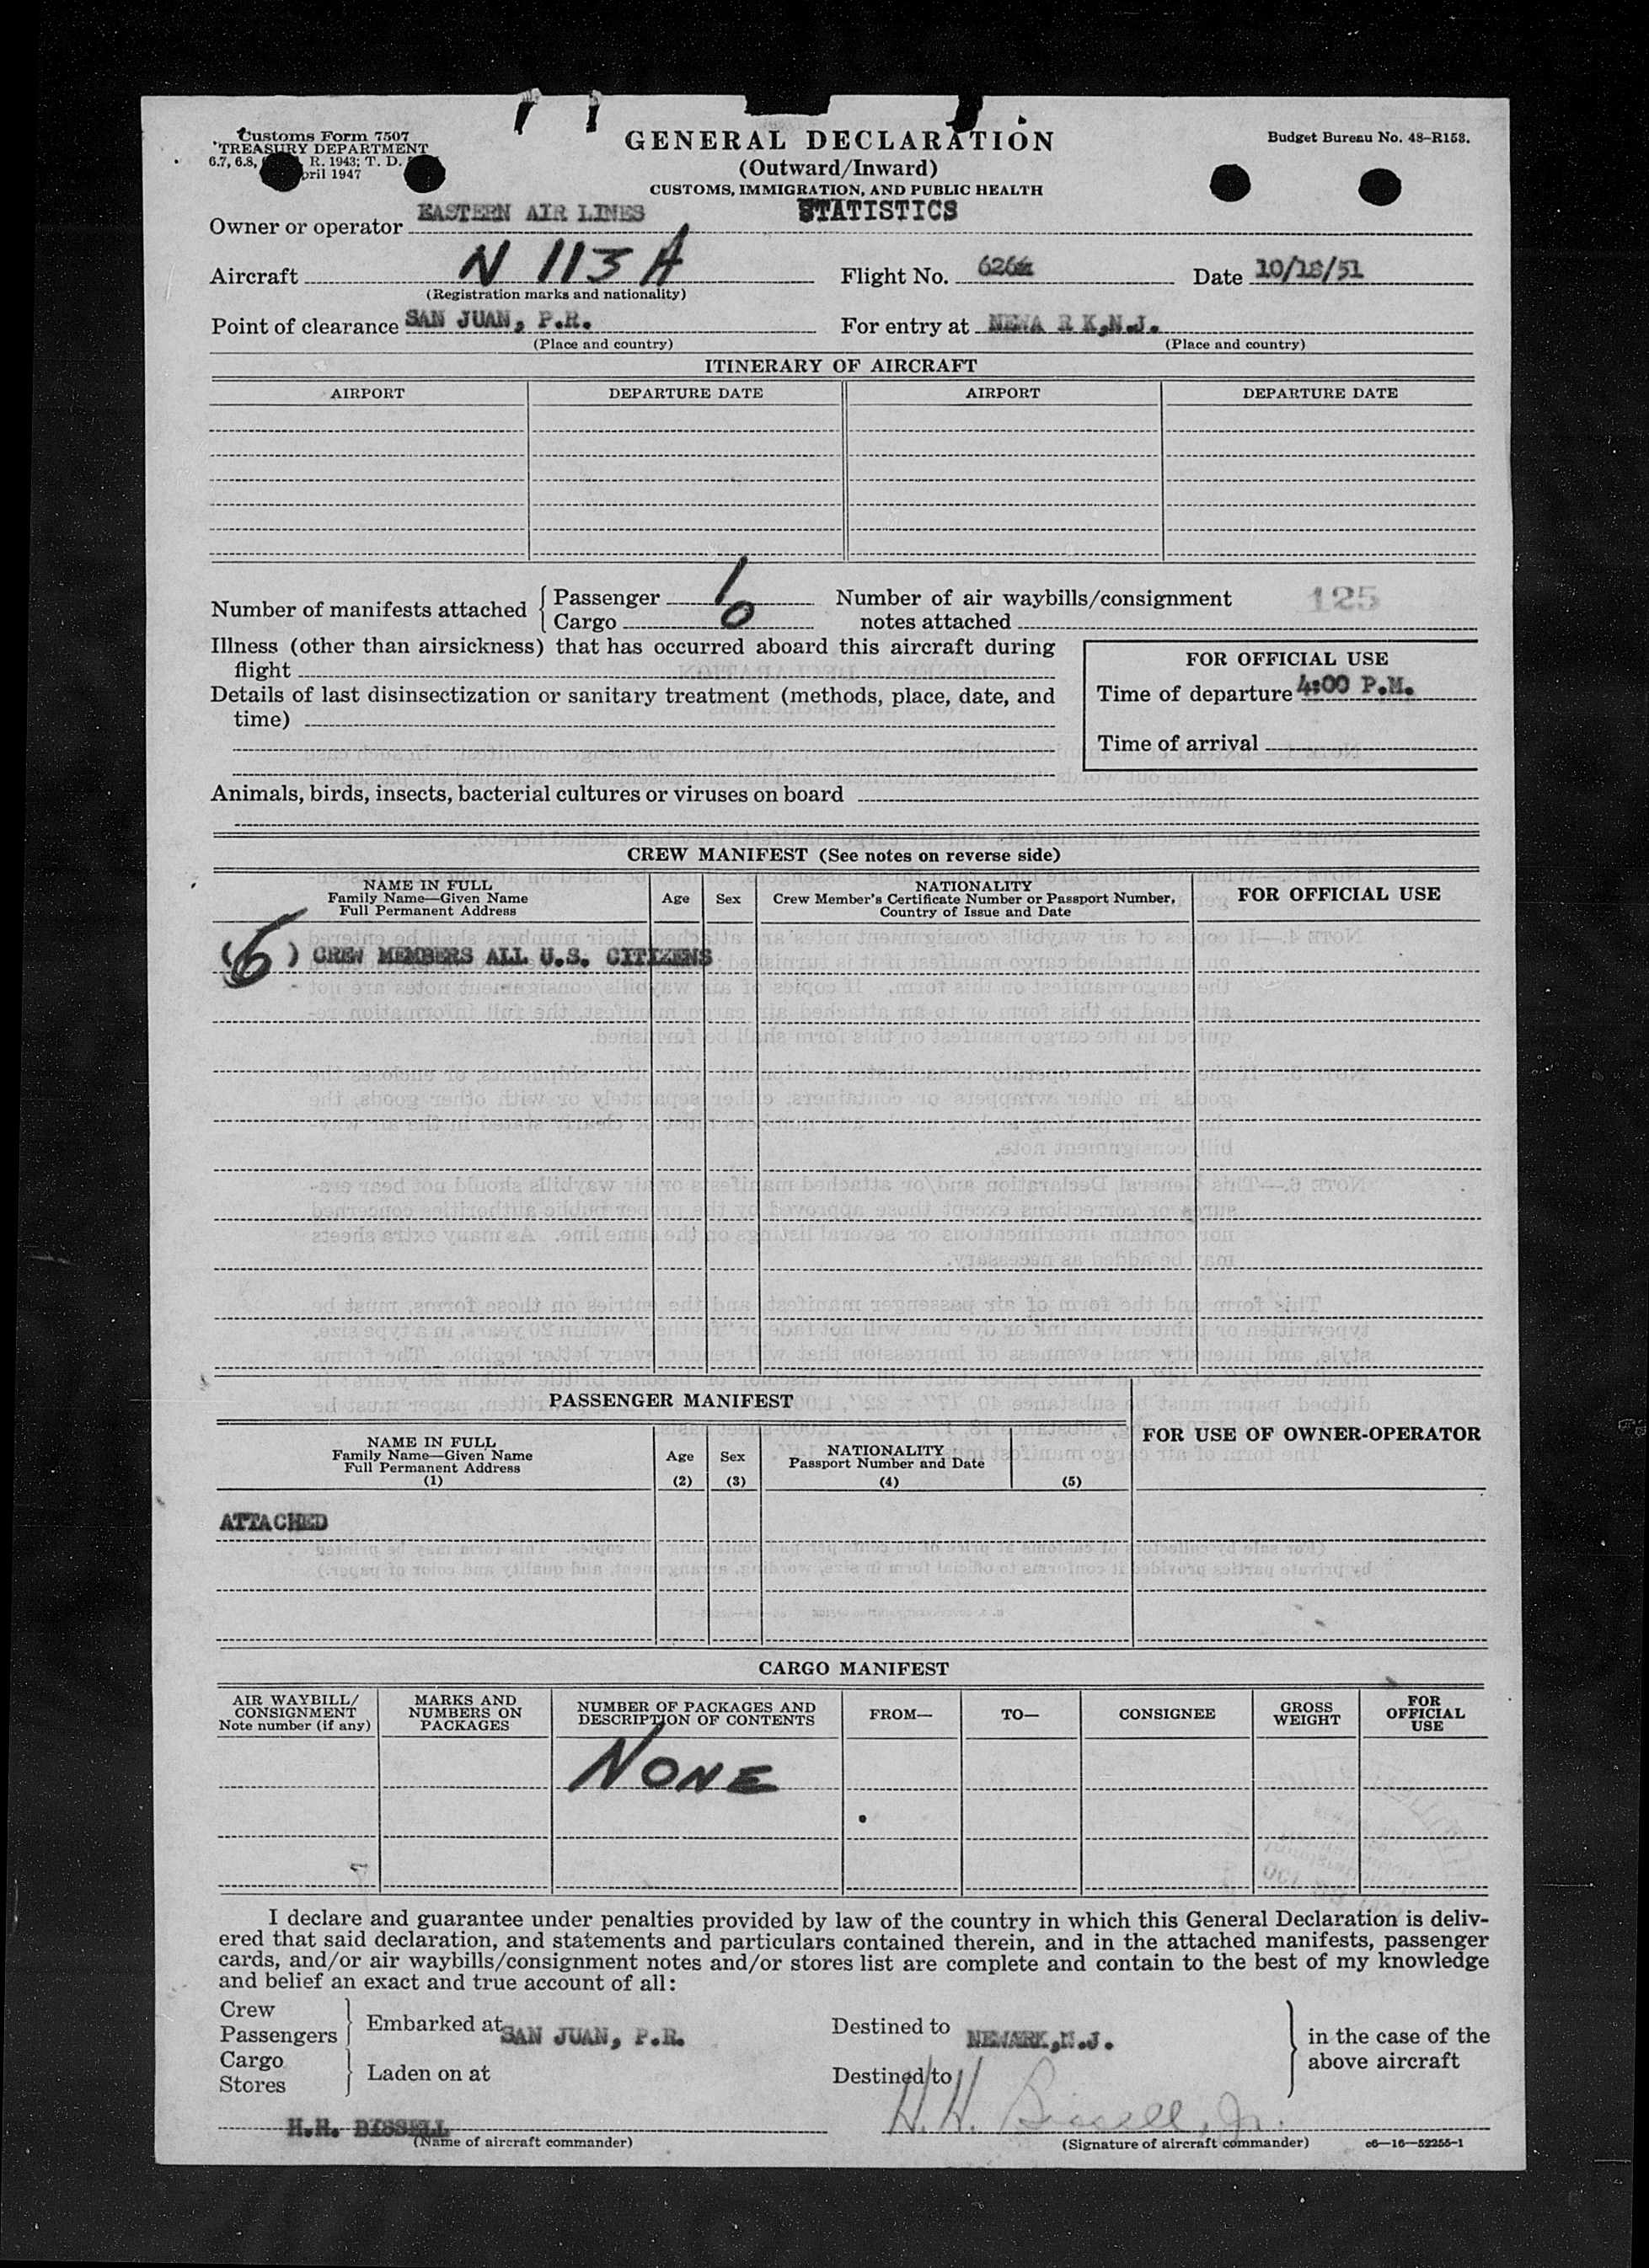 Customs Form 7507
TREASURY DEPARTMENT
6.7, 6.8, R. 1943; T. D.
pril 1947
GENERAL DECLARATION
(Outward/Inward)
CUSTOMS, IMMIGRATION, AND PUBLIC HEALTH
Budget Bureau No. 48-R158.
STATISTICS
Owner or operator EASTERN AIR LINES
Aircraft N 113 A
(Registration marks and nationality)
Flight No. 626
Date 10/18/51
Point of clearance SAN JUAN, P.R.
(Place and country)
For entry at NEWA R K,N.J.
(Place and country)
ITINERARY OF AIRCRAFT
AIRPORT DEPARTURE DATE AIRPORT DEPARTURE DATE
Number of manifests attached { Passenger 1
Cargo 0
Number of air waybills/consignment
notes attached
125
Illness (other than airsickness) that has occurred aboard this aircraft during
flight
Details of last disinsectization or sanitary treatment (methods, place, date, and
time)
FOR OFFICIAL USE
Time of departure 4:00 P.M.
Time of arrival
Animals, birds, insects, bacterial cultures or viruses on board
CREW MANIFEST (See notes on reverse side)
NAME IN FULL
Family Name—Given Name
Full Permanent Address
Age
Sex
NATIONALITY
Crew Member's Certificate Number or Passport Number,
Country of Issue and Date
FOR OFFICIAL USE
(6) CREW MEMBERS ALL U.S. CITIZENS
PASSENGER MANIFEST
NAME IN FULL
Family Name—Given Name
Full Permanent Address
(1)
Age
(2)
Sex
(3)
NATIONALITY
Passport Number and Date
(4)
(5)
FOR USE OF OWNER-OPERATOR
ATTACHED
CARGO MANIFEST
AIR WAYBILL/
CONSIGNMENT
Note number (if any)
MARKS AND
NUMBERS ON
PACKAGES
NUMBER OF PACKAGES AND
DESCRIPTION OF CONTENTS
FROM—
TO—
CONSIGNEE
GROSS
WEIGHT
FOR
OFFICIAL
USE
NONE
I declare and guarantee under penalties provided by law of the country in which this General Declaration is deliv-
ered that said declaration, and statements and particulars contained therein, and in the attached manifests, passenger
cards, and/or air waybills/consignment notes and/or stores list are complete and contain to the best of my knowledge
and belief an exact and true account of all:
Crew
Passengers
Embarked at SAN JUAN, P.R.
Destined to NEWARK,N.J.
Cargo
Stores
Laden on at
Destined to
in the case of the
above aircraft
H.H. BISSELL
(Name of aircraft commander)
H. H. Bissell, Jr.
(Signature of aircraft commander)
c6—16—52255-1